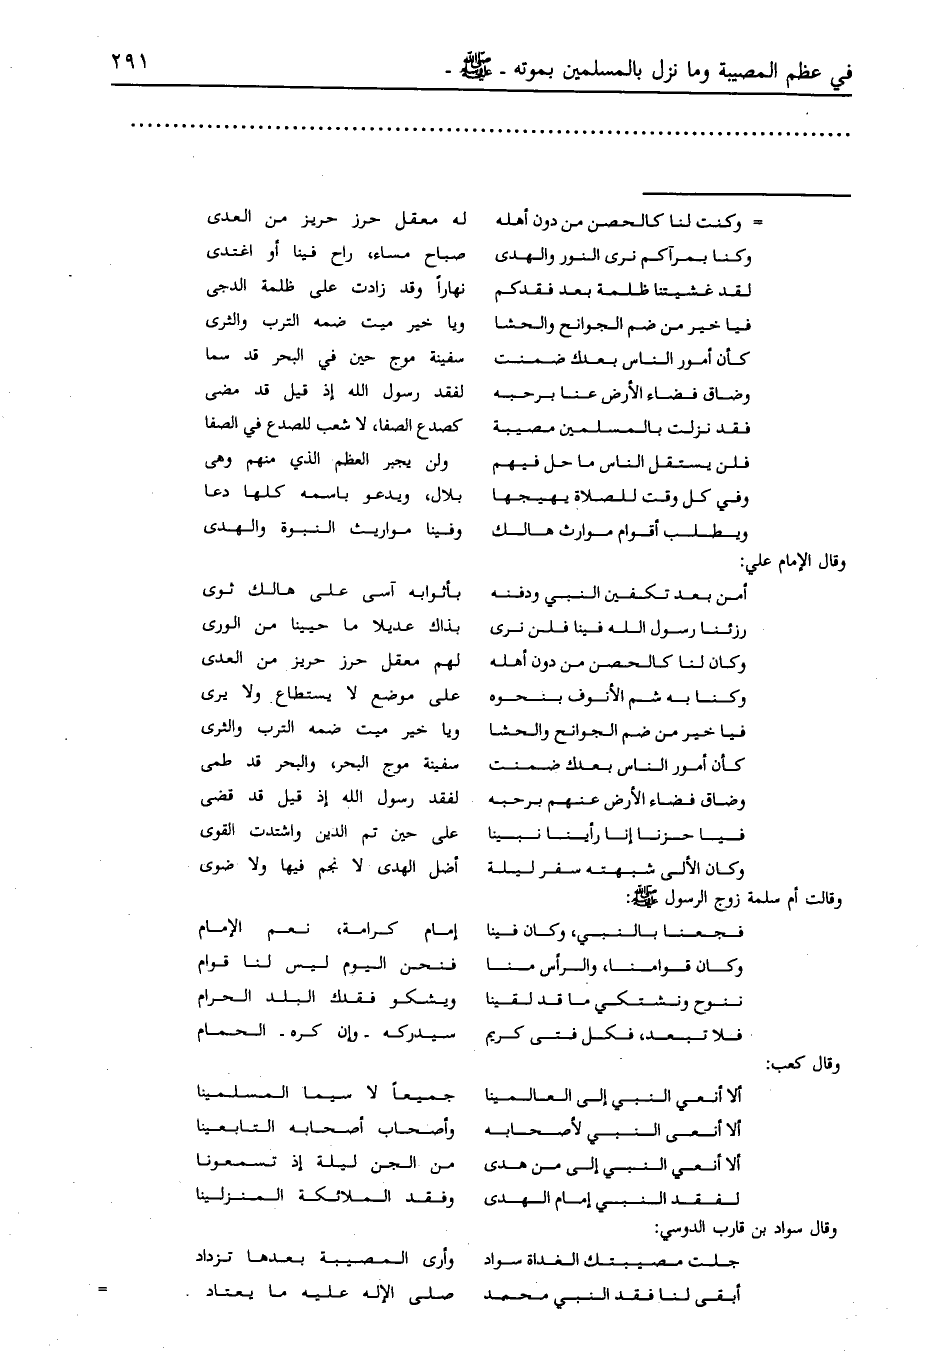 في عظم المصيبة وما نزل بالمسلمين بموته - ﷺ - ٢٩١
= وكنت لنا كالحصن من دون أهله له معقل حرز حريز من العدى
وكنا بمرآكم نرى النور والهدى صباح مساء، راح فينا أو اغتدى
لقد غشيتنا ظلمة بعد فقدكم نهاراً وقد زادت على ظلمة الدجى
فيا خير من ضم الجوانح والحشا ويا خير ميت ضمه الترب والثرى
كأن أمور الناس بعدك ضمنت سفينة موج حين في البحر قد سما
وضاق فضاء الأرض عنا برحبه لفقد رسول الله إذ قيل قد مضى
فقد نزلت بالمسلمين مصيبة كصدع الصفا، لا شعب للصدع في الصفا
فلن يستقل الناس ما حل فيهم ولن يجبر العظم الذي منهم وهى
وفي كل وقت للصلاة يهيجها بلال، ويدعو باسمه كلها دعا
ويطلب أقوام موارث هالك وفينا مواريث النبوة والهدى
وقال الإمام علي:
أمن بعد تكفين النبي ودفنه بأثوابه آسى على هالك ثوى
رزئنا رسول الله فينا فلن نرى بذاك عديلا ما حيينا من الورى
وكان لنا كالحصن من دون أهله لهم معقل حرز حريز من العدى
وكنا به شم الأنوف بنحوه على موضع لا يستطاع ولا يرى
فيا خير من ضم الجوانح والحشا ويا خير ميت ضمه الترب والثرى
كأن أمور الناس بعدك ضمنت سفينة موج البحر، والبحر قد طمى
وضاق فضاء الأرض عنهم برحبه لفقد رسول الله إذ قيل قد قضى
فيا حزنا إنا رأينا نبينا على حين تم الدين واشتدت القوى
وكان الألى شبهته سفر ليلة أضل الهدى لا نجم فيها ولا ضوى
وقالت أم سلمة زوج الرسول ﷺ:
فجعنا بالنبي، وكان فينا إمام كرامة، نعم الإمام
وكان قوامنا، والرأس منا فنحن اليوم ليس لنا قوام
ننوح ونشتكي ما قد لقينا ويشكو فقدك البلد الحرام
فلا تبعد، فكل فتى كريم سيدركه - وإن كره - الحمام
وقال كعب:
ألا أنعي النبي إلى العالمينا جميعاً لا سيما المسلمينا
ألا أنعى النبي لأصحابه وأصحاب أصحابه التابعينا
ألا أنعي النبي إلى من هدى من الجن ليلة إذ تسمعونا
لفقد النبي إمام الهدى وفقد الملائكة المنزلينا
وقال سواد بن قارب الدوسي:
جلت مصيبتك الغداة سواد وأرى المصيبة بعدها تزداد
أبقى لنا فقد النبي محمد صلى الإله عليه ما يعتاد . =